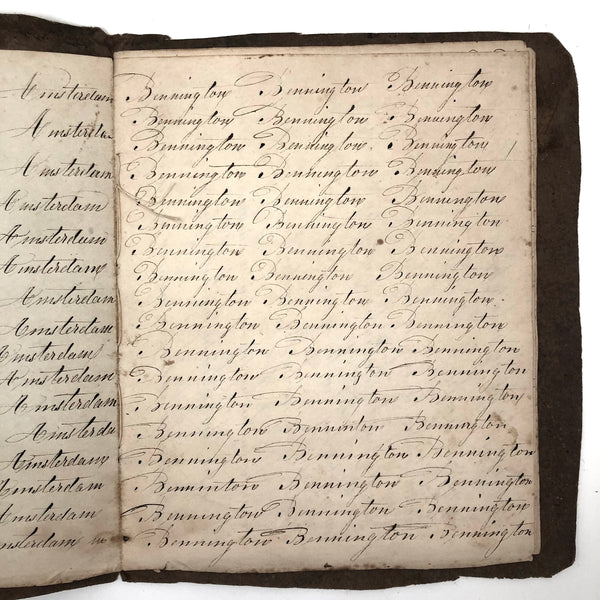 Amsterdam
Amsterdam
Amsterdam
Amsterdam
Amsterdam
Amsterdam
Amsterdam
Amsterdam
Amsterdam
Amsterdam
Amsterdam
Amsterda
Amsterdam
Amsterdam
Amsterdam
msterdam
Bennington Bennington Bennington
Bennington Bennington Bennington
Bennington Bennington Bennington
Bennington Bennington Bennington
Bennington Bennington Bennington
Bennington Bennington Bennington
Bennington Bennington Bennington
Bennington Bennington Bennington
Bennington Bennington Bennington
Bennington Bennington Bennington
Bennington Bennington Bennington
Bennington Bennington Bennington
Bennington Bennington Bennington
Bennington Benninton Bennington
Bennington Bennington Bennington
Benninton Bennington Bennington
Bennington Bennington Bennington
Bennington Bennington Bennington